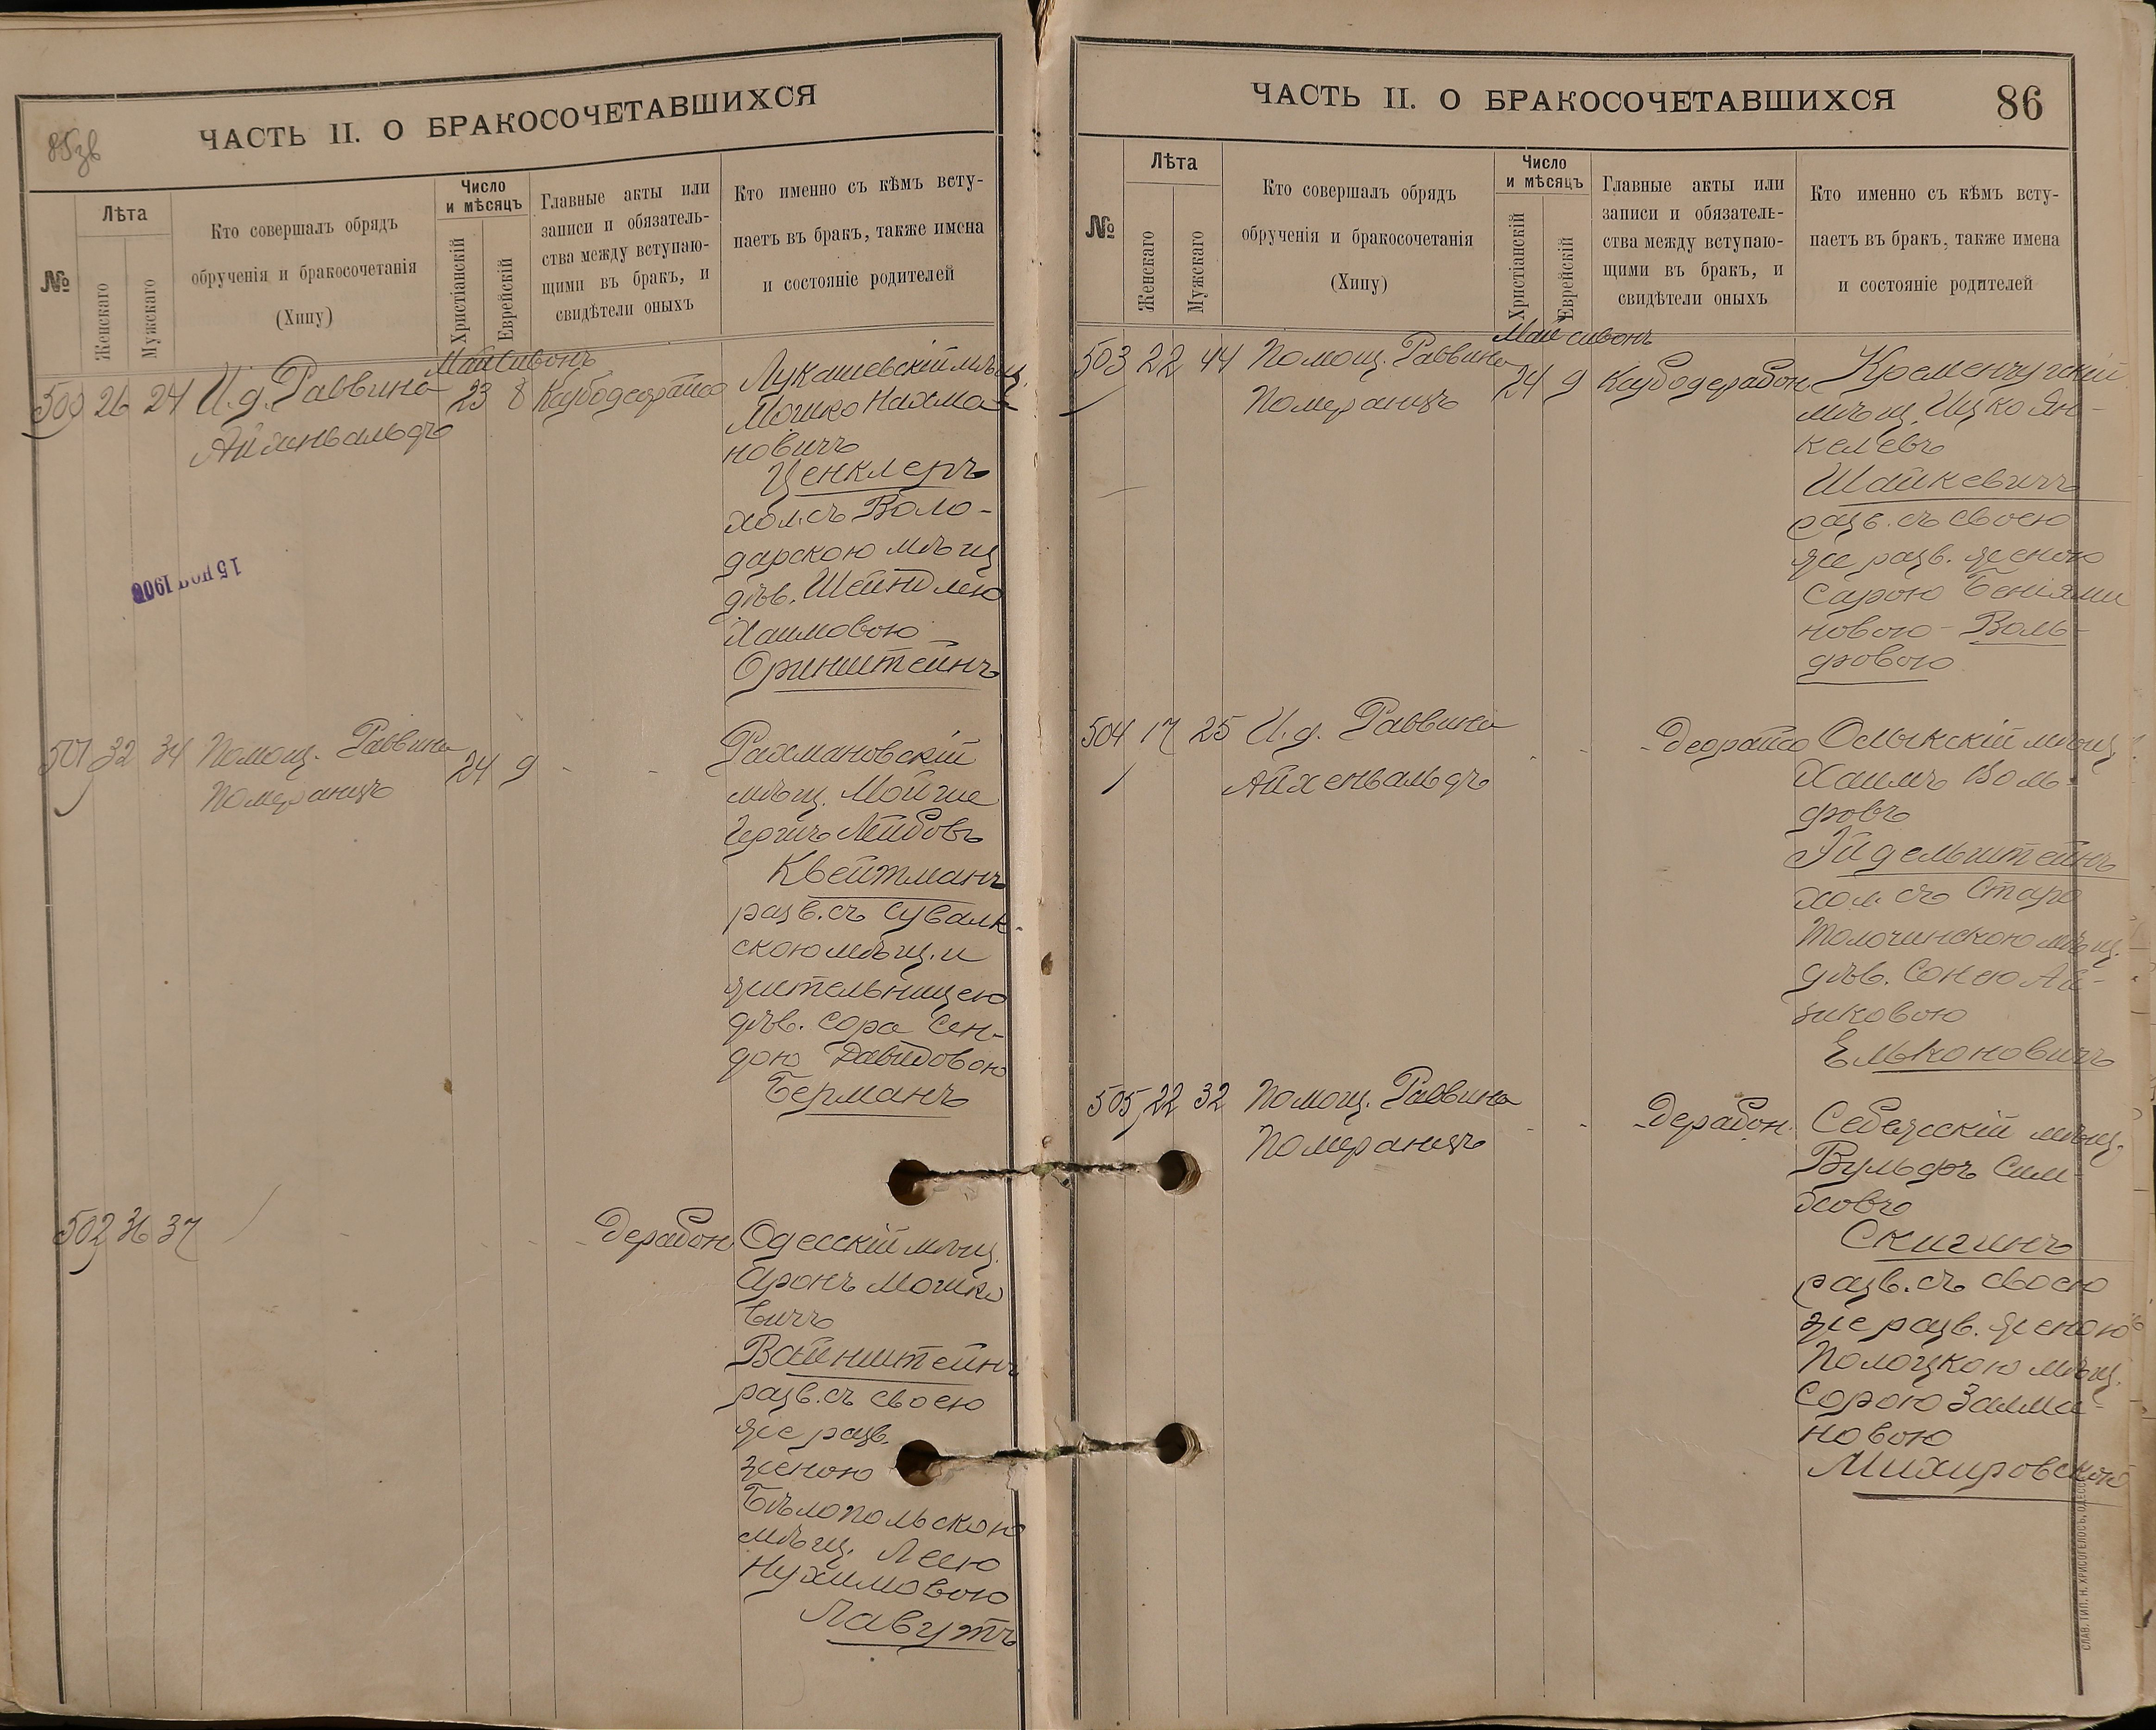 85зв
ЧАСТЬ II. О БРАКОСОЧЕТАВШИХСЯ
№
Лѣта
Женскаго
Мужскаго
Кто совершалъ обрядъ
обрученія и бракосочетанія
(Хипу)
Число
и мѣсяцъ
Христіанскій
Еврейскій
Главные акты или
записи и обязатель-
ства между вступаю-
щими въ бракъ, и
свидѣтели оныхъ
Кто именно съ кѣмъ всту-
паетъ въ бракъ, также имена
и состояніе родителей
Май Сивонъ
500 26 24 И. д. Раввина 23 8
Айхенвальдъ
Лукашевскій мѣщ.
Мошко Нахма-
новичъ
Ценклеръ
хол. съ Воло-
дарскою мѣщ
дѣв. Шейндлею
Хаимовою
Оринштейнъ
15 НОЯ 1906
501 32 34 Помощ. Раввина 24 9 - -
Померанцъ
Рахмановскій
мѣщ. Мойше
Герши Лейбовъ
Квейтманъ
разв. съ Сувалк-
скою мѣщ. и
жительницею
дѣв. Сора Сен-
дою Давидовою
Берманъ
502 36 37 - - - - Дерабон
Одесскій мѣщ.
Аронъ Мошко
вичъ
Вайнштейнъ
разв. съ своею
же разв.
женою
Бѣлопольскою
мѣщ. Леею
Нухимовою
Лавутъ
ЧАСТЬ II. О БРАКОСОЧЕТАВШИХСЯ 86
№
Лѣта
Женскаго
Мужскаго
Кто совершалъ обрядъ
обрученія и бракосочетанія
(Хипу)
Число
и мѣсяцъ
Христіанскій
Еврейскій
Главные акты или
записи и обязатель-
ства между вступаю-
щими въ бракъ, и
свидѣтели оныхъ
Кто именно съ кѣмъ всту-
паетъ въ бракъ, также имена
и состояніе родителей
Май сивонъ
503 22 44 Помощ. Раввина 24 9 Ксубодерабон
Померанцъ
Кременчугскій
мѣщ. Ицко Ян-
келевъ
Шайкевичъ
разв. съ своею
же разв. женою
Сарою Беніями
новою - Воль-
фовою
504 17 25 И. д. Раввина - - - Деорайсо
Айхенвальдъ
Олыкскій мѣщ
Хаимъ Воль-
фовъ
Эйдельштейнъ
хол. съ Старо
Толочинскою мѣщ.
дѣв. Сонею Ай-
зиковою
Ельконовичъ
505 22 32 Помощ. Раввина - - - Дерабон
Померанцъ
Себежскій мѣщ.
Вульфъ Сим-
ховъ
Скигинъ
разв. съ своею
же разв. женою
Полоцкою мѣщ.
Сорою Залма-
новою
СЛАВ. ТИП. Н. ХРИСОГЕЛОСЪ, ОДЕССА